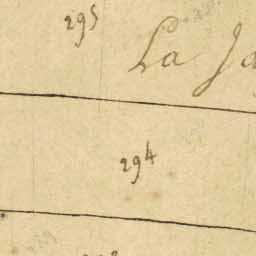 295
La Ja
294